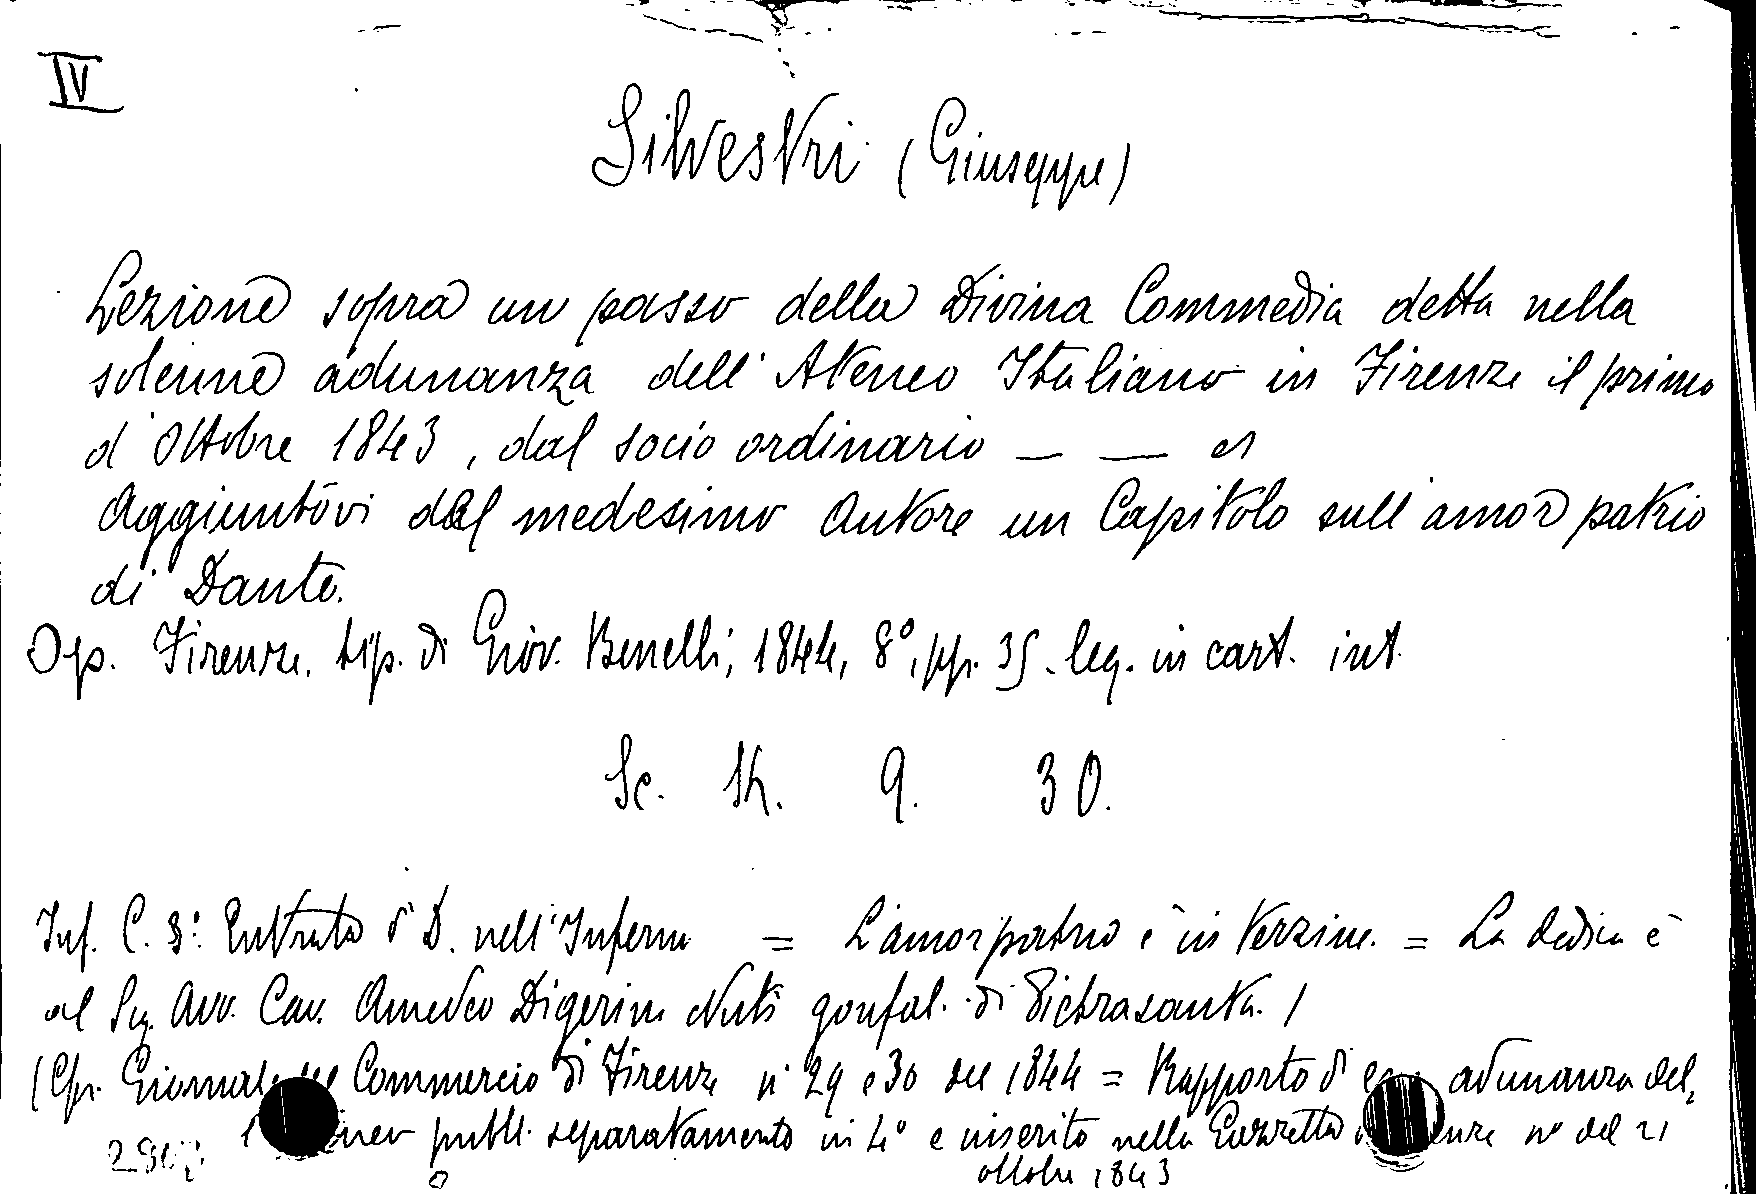 IV
Silvestri (Giuseppe)
Lezione sopra un passo della Divina Commedia detta nella
solenne adunanza dell'Ateneo Italiano in Firenze il primo
d'Ottobre 1843, dal socio ordinario — —
Aggiuntovi dal medesimo autore un Capitolo sull'amor patrio
di Dante.
Op. Firenze. tip. di Giov. Benelli, 1844, 8°, pp. 35. leg. in cart. int.
Sc. Sh. 9. 30.
Inf. C. 3: Entrata di D. nell'Inferno = L'amor patrio è in terzine. = La dedica è
al Sig. Avv. Cav. Amedeo Digerini Nuti gonfal. di Pietrasanta. /
(Cfr. Giornale del Commercio di Firenze n° 29 e 30 del 1844 = Rapporto di adunanza del
publl. separatamente in 4° e inserito nella Gazzetta n° del 21
ottobre 1843